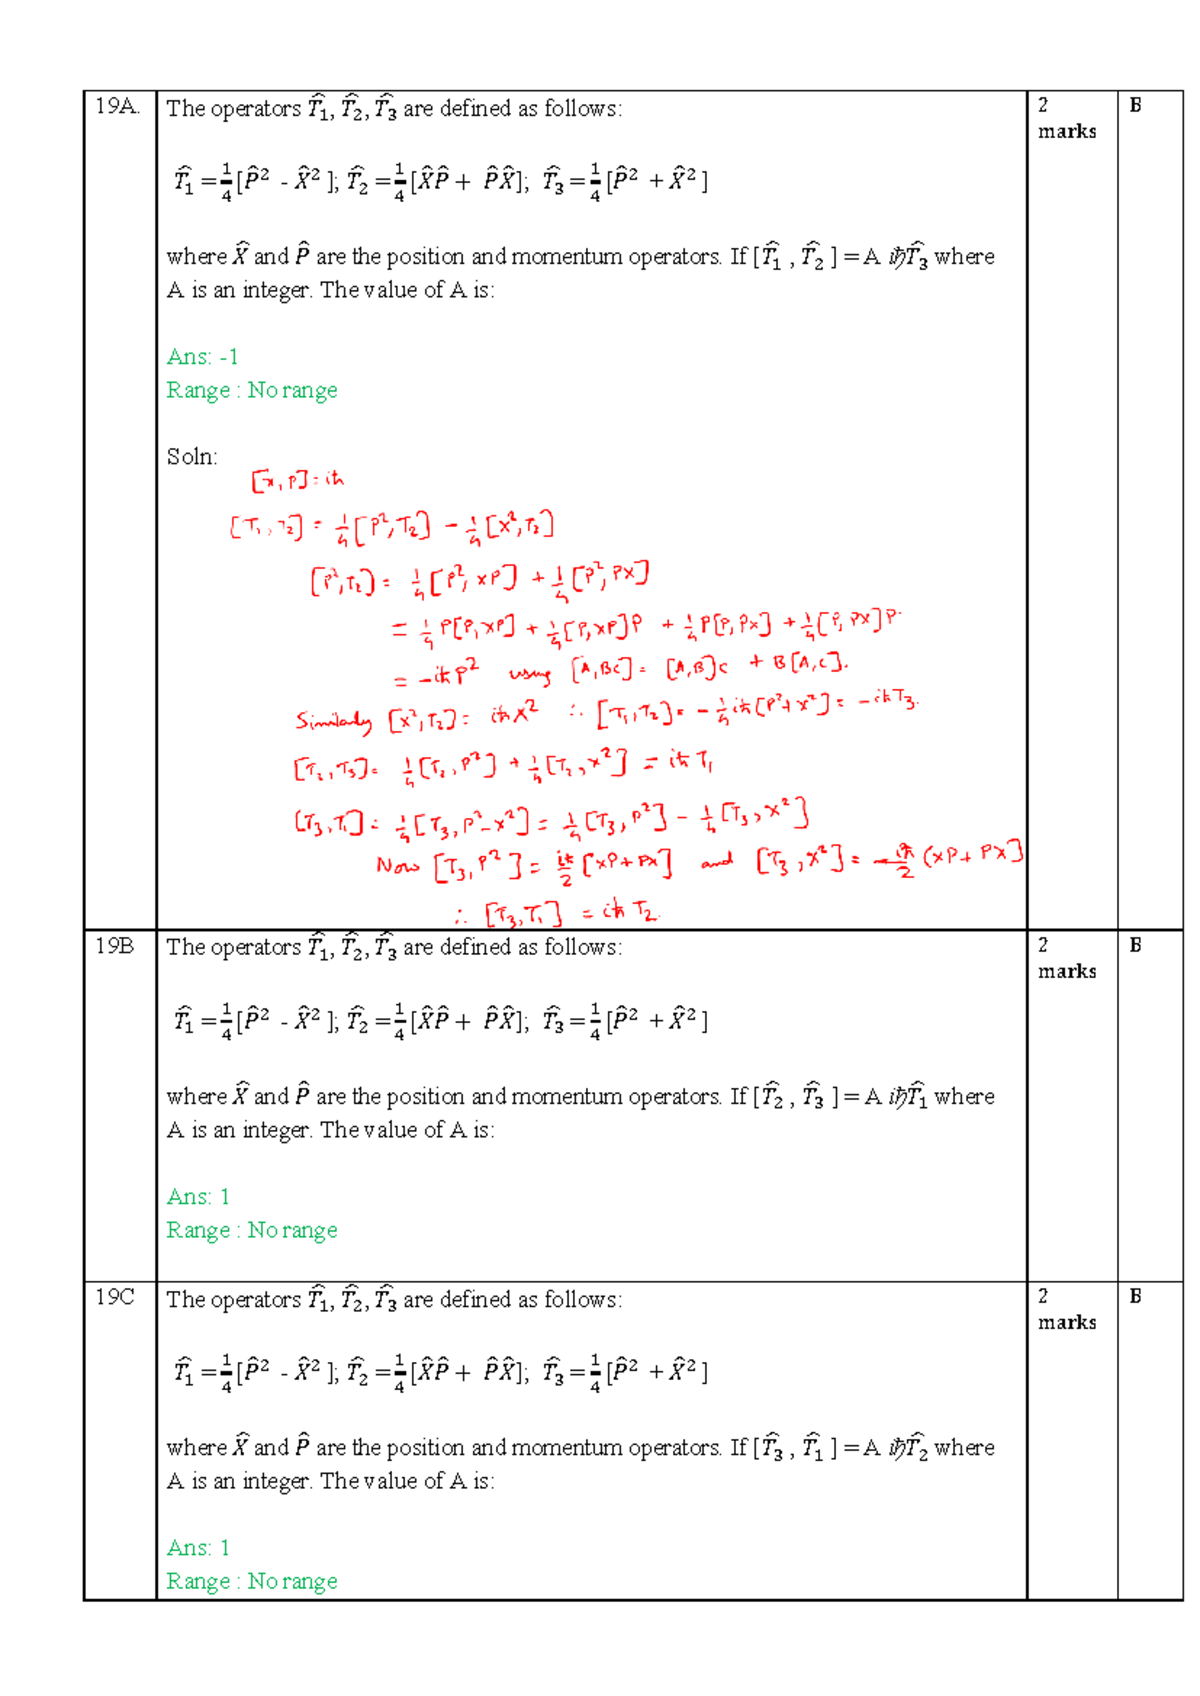 19A. The operators T̂₁, T̂₂, T̂₃ are defined as follows: 2 marks B
T̂₁ = 1/4 [P̂² - X̂² ]; T̂₂ = 1/4 [X̂P̂ + P̂X̂]; T̂₃ = 1/4 [P̂² + X̂² ]
where X̂ and P̂ are the position and momentum operators. If [T̂₁ , T̂₂ ] = A iℏT̂₃ where
A is an integer. The value of A is:
Ans: -1
Range : No range
Soln:
[x, p] = iħ
[T₁, T₂] = 1/4 [P², T₂] - 1/4 [X², T₂]
[P², T₂] = 1/4 [P², XP] + 1/4 [P², PX]
= 1/4 P[P, XP] + 1/4 [P, XP]P + 1/4 P[P, PX] + 1/4 [P, PX]P
= -iħP² using [A, BC] = [A, B]C + B[A, C].
Similarly [X², T₂] = iħX² ∴ [T₁, T₂] = - 1/4 iħ[P² + X²] = -iħT₃.
[T₂, T₃] = 1/4 [T₂, P²] + 1/4 [T₂, X²] = iħT₁
[T₃, T₁] = 1/4 [T₃, P² - X²] = 1/4 [T₃, P²] - 1/4 [T₃, X²]
Now [T₃, P²] = iħ/2 [XP + PX] and [T₃, X²] = -iħ/2 (XP + PX]
∴ [T₃, T₁] = iħT₂.
19B The operators T̂₁, T̂₂, T̂₃ are defined as follows: 2 marks B
T̂₁ = 1/4 [P̂² - X̂² ]; T̂₂ = 1/4 [X̂P̂ + P̂X̂]; T̂₃ = 1/4 [P̂² + X̂² ]
where X̂ and P̂ are the position and momentum operators. If [T̂₂ , T̂₃ ] = A iℏT̂₁ where
A is an integer. The value of A is:
Ans: 1
Range : No range
19C The operators T̂₁, T̂₂, T̂₃ are defined as follows: 2 marks B
T̂₁ = 1/4 [P̂² - X̂² ]; T̂₂ = 1/4 [X̂P̂ + P̂X̂]; T̂₃ = 1/4 [P̂² + X̂² ]
where X̂ and P̂ are the position and momentum operators. If [T̂₃ , T̂₁ ] = A iℏT̂₂ where
A is an integer. The value of A is:
Ans: 1
Range : No range